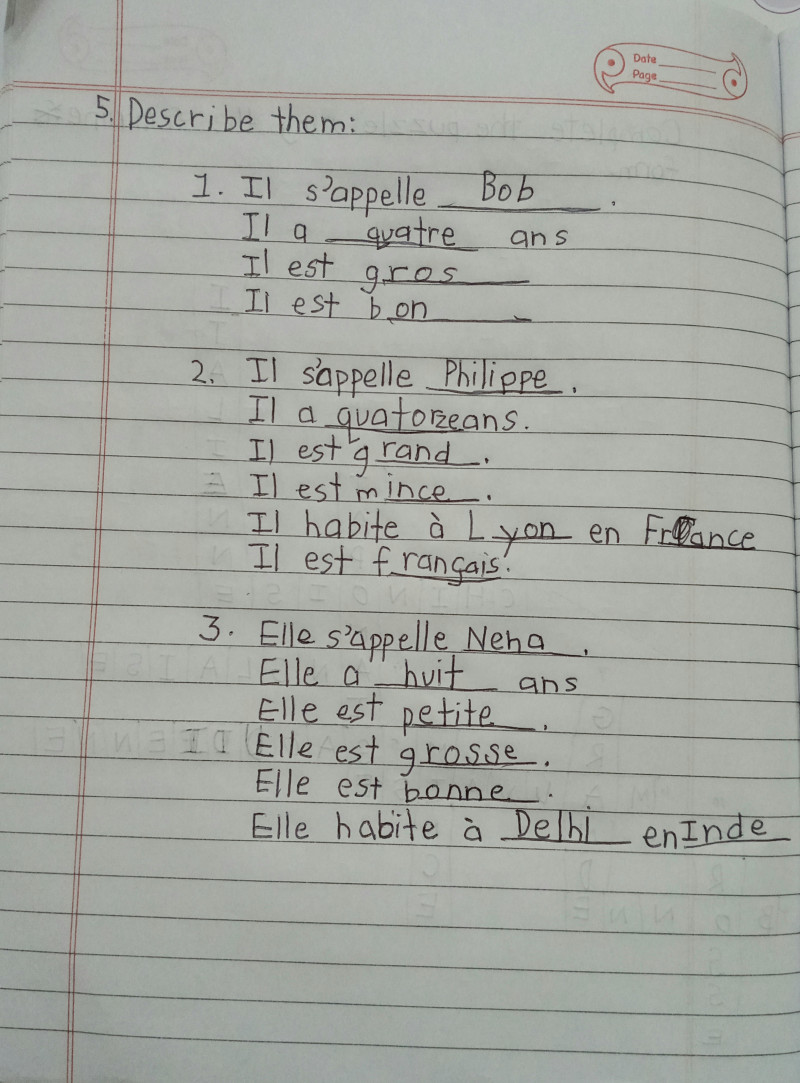 Date
Page
5. Describe them:
1. Il s'appelle Bob.
Il a quatre ans
Il est gros
Il est bon.
2. Il s'appelle Philippe.
Il a quatorzeans.
Il est grand.
Il est mince.
Il habite à Lyon en France
Il est français.
3. Elle s'appelle Neha.
Elle a huit ans
Elle est petite.
Elle est grosse.
Elle est bonne.
Elle habite à Delhi en Inde